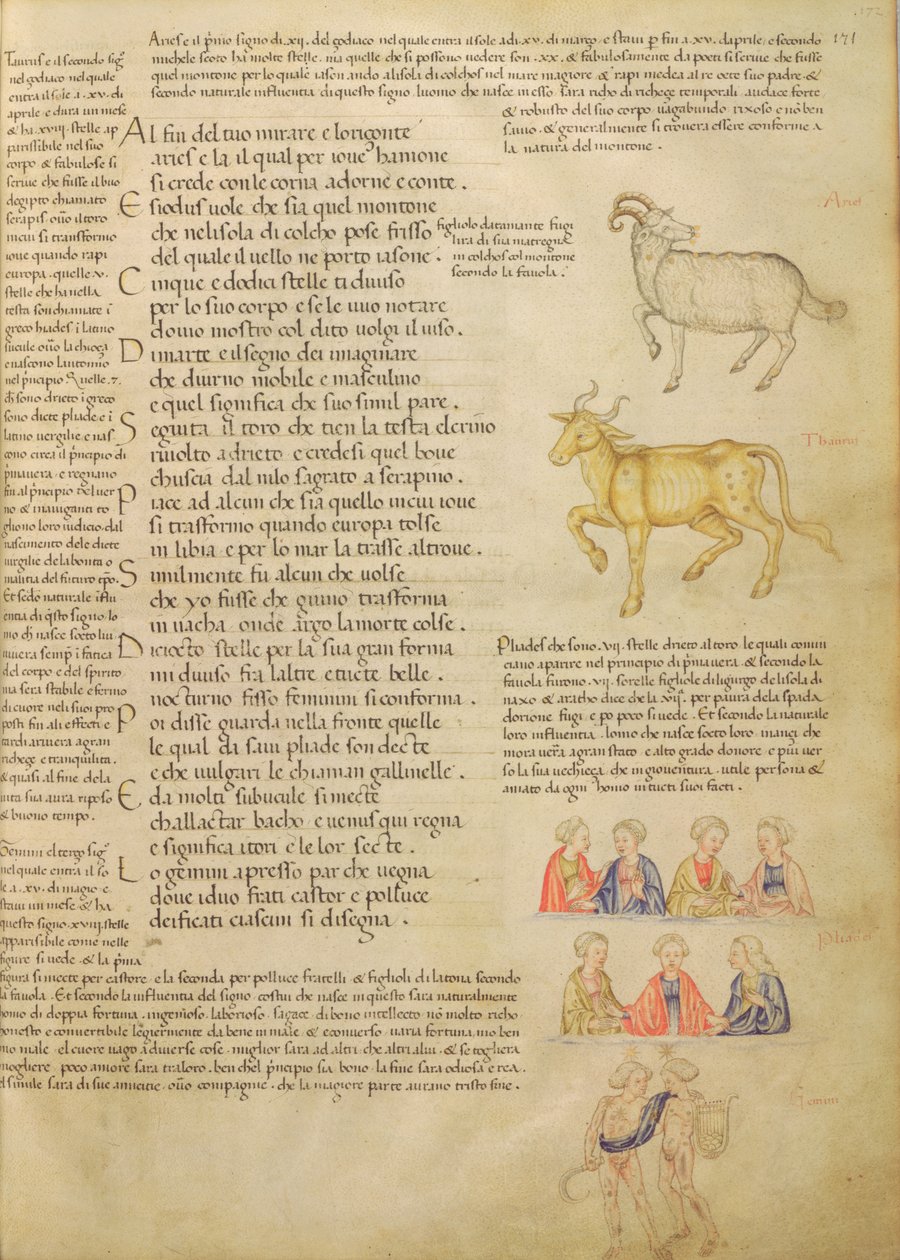 172
171
Aries e il p̄mo signo di .xij. del zodiaco nel quale entra il sole a di .xv. di março . e stavi p̄ fin a .xv. daprile . e secondo
michele scoto ha molte stelle . ma quelle che si possono vedere son .xx. & fabulosamente da poeti si scrive che fusse
quel montone per lo quale iason ando alisola di colchos nel mare magiore & rapi medea al re oete suo padre . &
secondo naturale influentia di questo signo . luomo che nasce in esso sara richo di richeçe temporali . audace forte
& robusto del suo corpo vagabundo rixoso e nō ben
savio . & generalmente si trovera essere conforme a
la natura del montone .
Taurus e il secondo sig̃
nel zodiaco nel quale
entra il sole a .xv. di
aprile e dura un mese
& ha .xviij. stelle ap
parissibile nel suo
corpo . & fabulose si
scrive che fusse il buo
degipto chiamato
serapis . ov̄o il toro
in cui si transformo
iove quando rapi
europa . quelle .v.
stelle che ha nella
testa son chiamate ī
greco hiades ī latino
sucule ov̄o la chioça
e nascono lautonno
nel p̄ncipio & quelle .7.
ch̄ sono drieto ī greco
sono dicte pliade e ī
latino vergilie e nas
cono circa il p̄ncipio di
p̄mavera . e regnano
fin al p̄ncipio del ver
no & i naviganti to
gliono loro iudicio . dal
nascimento dele dicte
virgilie dela bonta o
malitia del futuro tp̄o .
Et sedō naturale īflu
entia di q̄sto signo lo
mo ch̄ nasce socto lui
vivera semp̄ ī fatica
del corpo e del spirito
ma sera stabile e fermo
di cuore neli suoi pro
posti fin ali effecti e
tardi arivera a gran
richeçe e tranquilita .
& quasi al fine de la
vita sua avra riposo
& buono tempo .
Al fin del tuo mirare e loriçonte
aries e la il qual per iove hamone
si crede con le corna adorne e conte .
Esiodus vole che sia quel montone
che nelisola di colcho pose frisso
del quale il vello ne porto iasone .
figliolo datamante fugi
lira di sua matregna
in colchos col montone
secondo la favola .
Cinque e dodici stelle ti diviso
per lo suo corpo e se le vuo notare
dovio mostro col dito volgi il viso .
Di marte e il segno dei imaginare
che diurno mobile e masculino
e quel significa che suo simil pare .
Seguita il toro che tien la testa elcrino
rivolto adrieto e credesi quel bove
chuscia dal nilo sagrato a serapino .
Piace ad alcun che sia quello in cui iove
si trasformo quando europa tolse
in libia e per lo mar la trasse altrove .
Similmente fu alcun che volse
che yo fusse che giuno trasforma
in vacha onde argo la morte colse .
Diciocto stelle per la sua gran forma
mi diviso fra laltre e tucte belle
nocturno fisso feminin si conforma .
Poi disse guarda nella fronte quelle
le qual da savi pliade son decte
e che vulgari le chiaman gallinelle .
E da molti subucule si mecte
challactar bacho e venus qui regna
e significa itori e le lor secte .
Lo gemini apresso par che vegna
dove iduo frati castor e polluce
deificati ciascun si disegna .
Aries
Thaurus
Pliades che sono .vij. stelle drieto al toro le quali comin
ciano aparire nel principio di p̄mavera . & secondo la
favola furono .vij. sorelle figliole di ligurgo de lisola di
naxo & aratho dice che la .vijᵃ. per paura dela spada
dorione fugi e po poco si vede . Et secondo la naturale
loro influentia . lomo che nasce socto loro inançi che
mora verra a gran stato e alto grado donore e piu ver
so la sua vechieça che in gioventura . utile persona &
amato da ogni homo in tucti suoi facti .
Pliades
Gemini el terço sig̃
nel quale entra il so
le a .xv. di magio e
stavi un mese & ha
questo signo .xviij. stelle
apparisibile come nelle
figure si vede . & la p̄ma
figura si mecte per castore . e la seconda per polluce fratelli & figlioli di latona secondo
la favola . Et secondo la influentia del signo . costui che nasce in questo sara naturalmente
homo di doppia fortuna . ingenioso . laborioso . sagace . di bono intellecto nō molto richo .
honesto e convertibile legiermente da bene in male . & econverso . varia fortuna mo ben
mo male . el cuore vago a diverse cose . miglior sara ad altri che altri alui . & se togliera
mogliere poco amore sara tra loro . ben chel p̄ncipio sia bono . la fine sara odiosa e rea .
el simile sara di sue amicitie . ov̄o compagnie . che la magiore parte avrano tristo fine .
Gemini